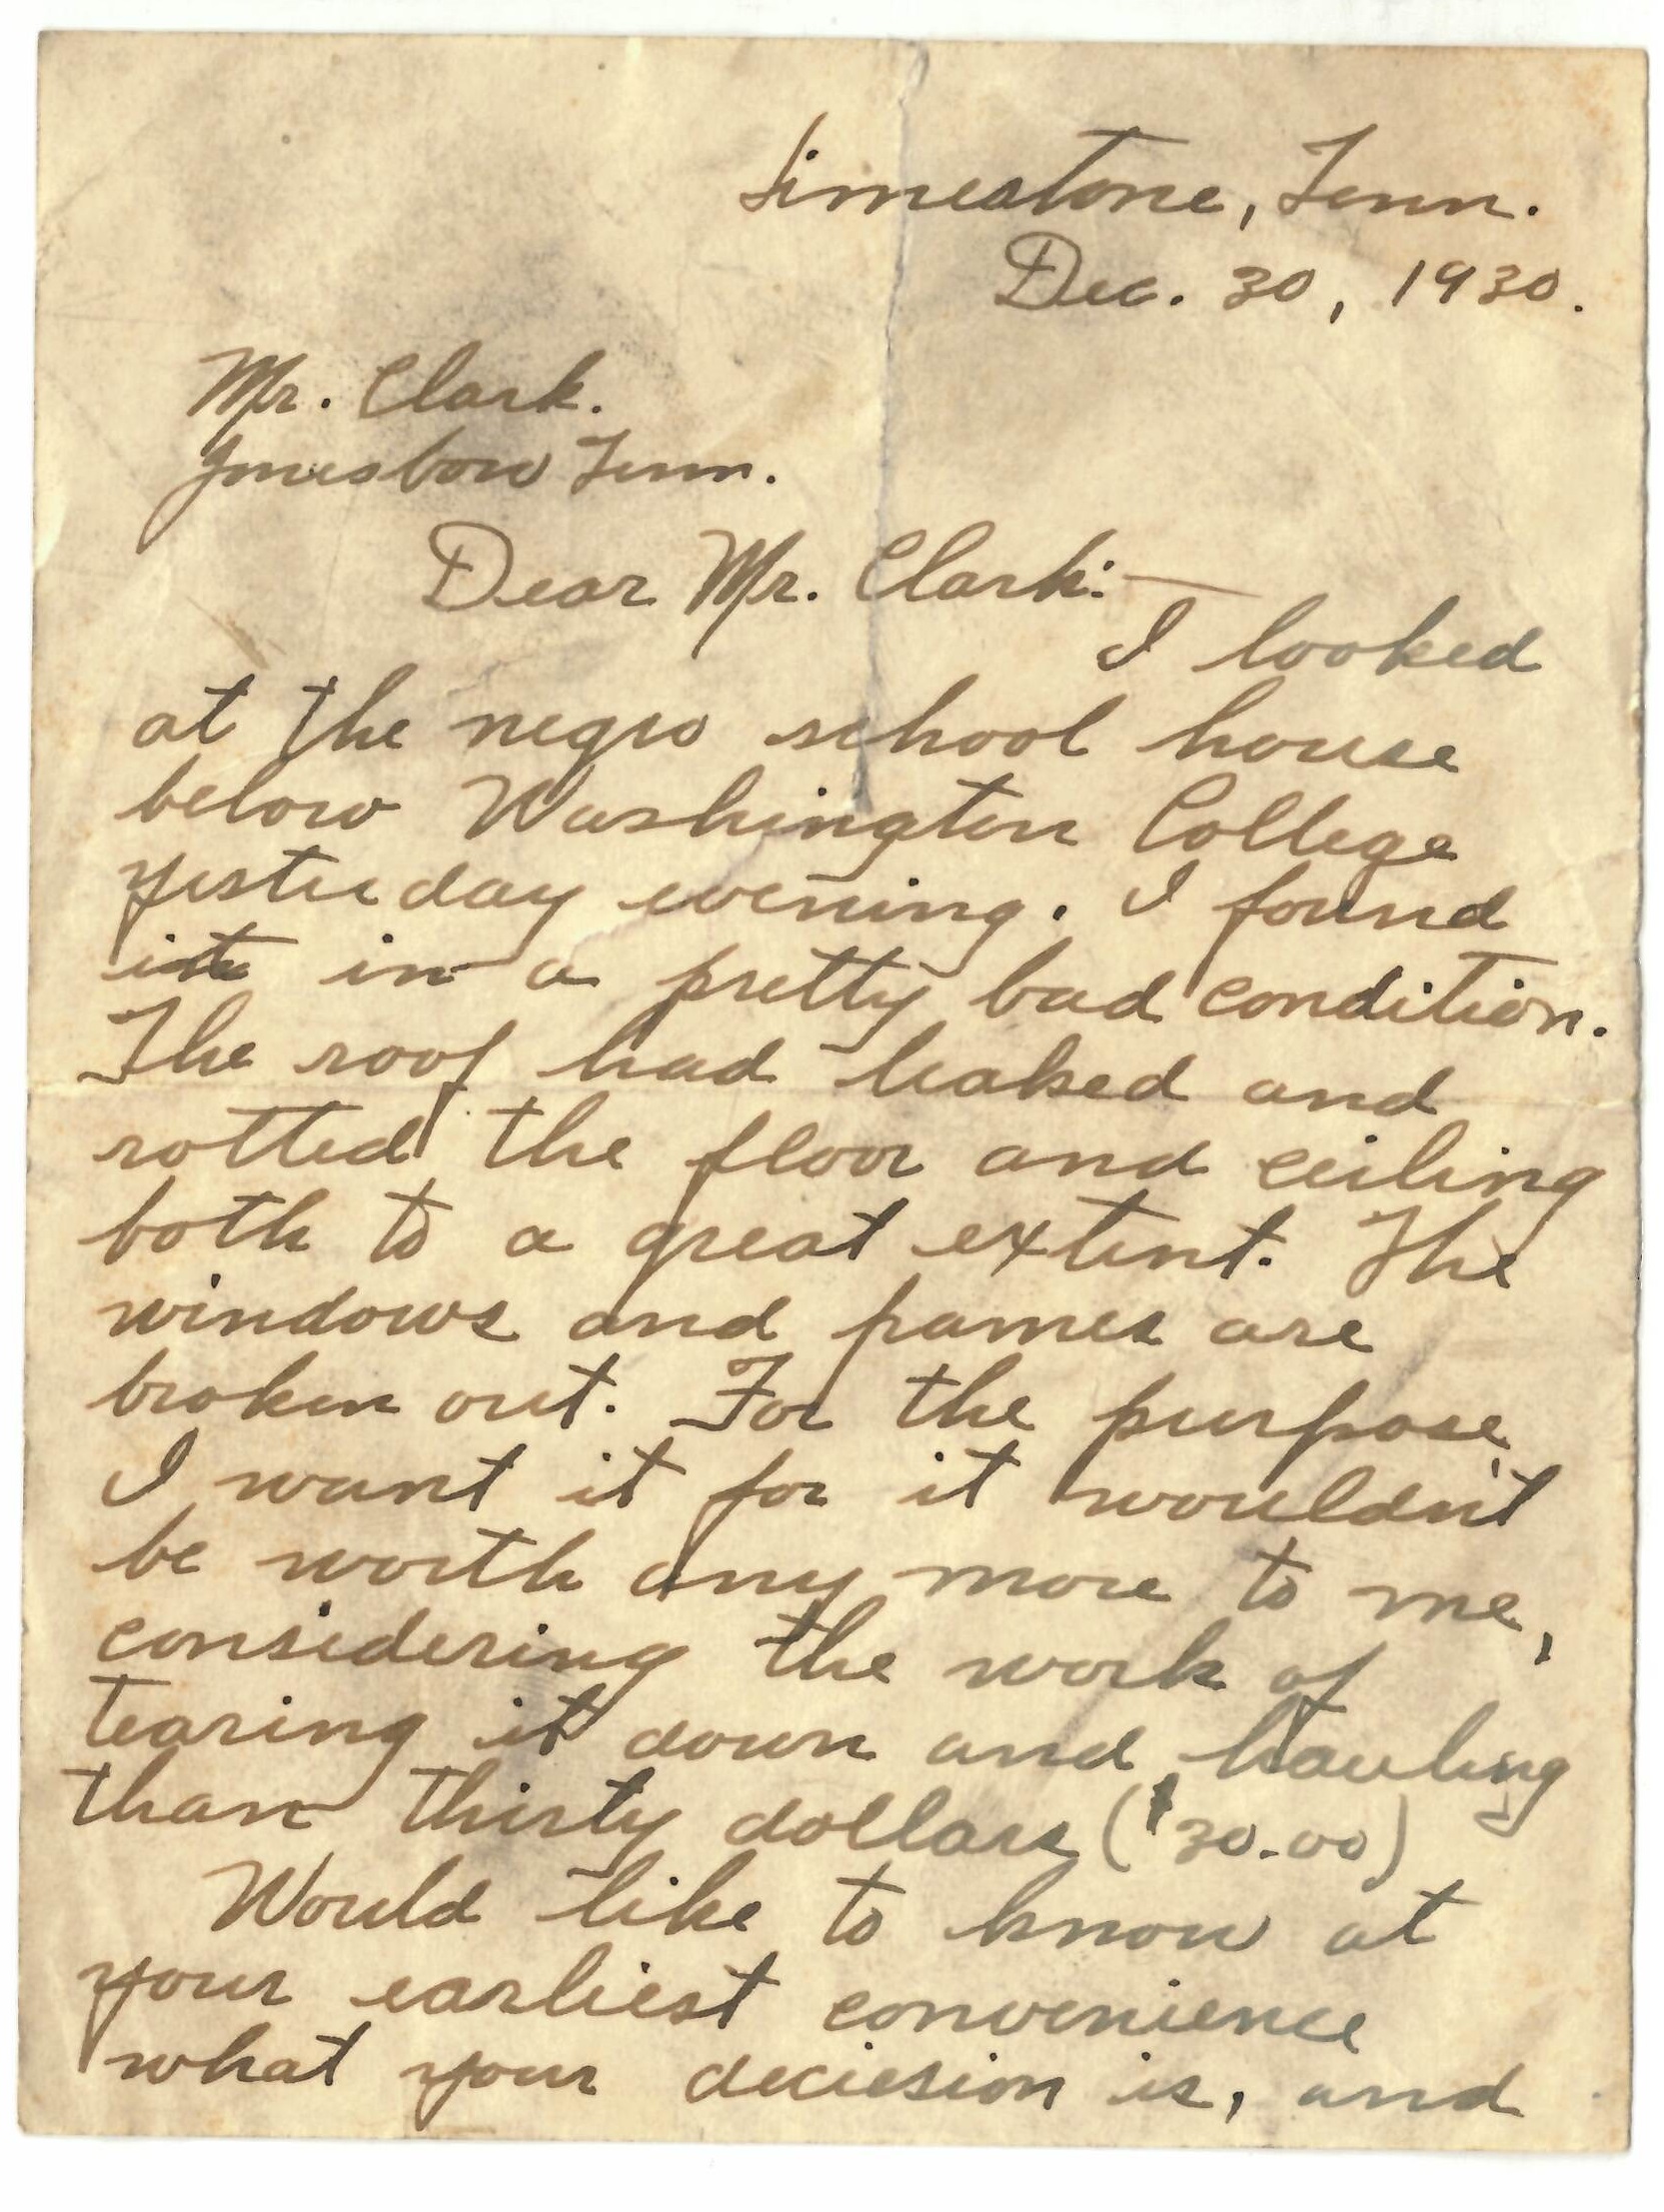 Limestone, Tenn.
Dec. 30, 1930.
Mr. Clark.
Jonesboro Tenn.
Dear Mr. Clark:—
I looked
at the negro school house
below Washington College
yesterday evening. I found
it in a pretty bad condition.
The roof had leaked and
rotted the floor and ceiling
both to a great extent. The
windows and pames are
broken out. For the purpose
I want it for it wouldn't
be worth any more to me,
considering the work of
tearing it down and hauling
than thirty dollars ($30.00)
Would like to know at
your earliest convenience
what your deciesion is, and